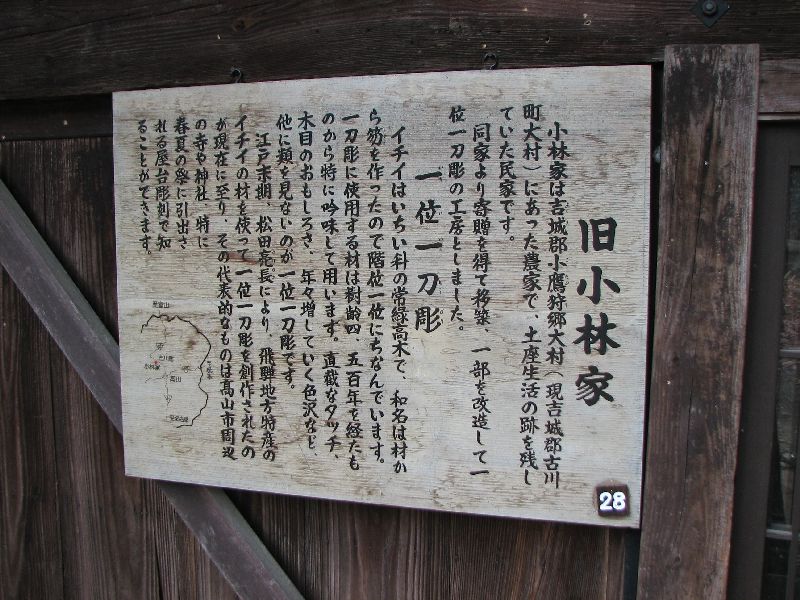 旧小林家
小林家は吉城郡小鷹狩郷大村（現吉城郡古川
町大村）にあった農家で、土座生活の跡を残し
ていた民家です。
同家より寄贈を得て移築、一部を改造して一
位一刀彫の工房としました。
一位一刀彫
イチイはいちい科の常緑高木で、和名は材か
ら笏を作ったので階位一位にちなんでいます。
一刀彫に使用する材は樹齢四、五百年を経たも
のから特に吟味して用います。直截なタッチ、
木目のおもしろさ、年々増していく色沢など、
他に類を見ないのが一位一刀彫です。
江戸末期、松田亮長により、飛騨地方特産の
イチイの材を使って一位一刀彫を創作されたの
が現在に至り、その代表的なものは高山市周辺
の寺や神社、特に
春夏の祭に引出さ
れる屋台彫刻で知
ることができます。
小林家
高山
28